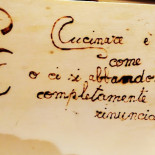 Cucinare è
come
o ci si abbando
completamente
rinuncia